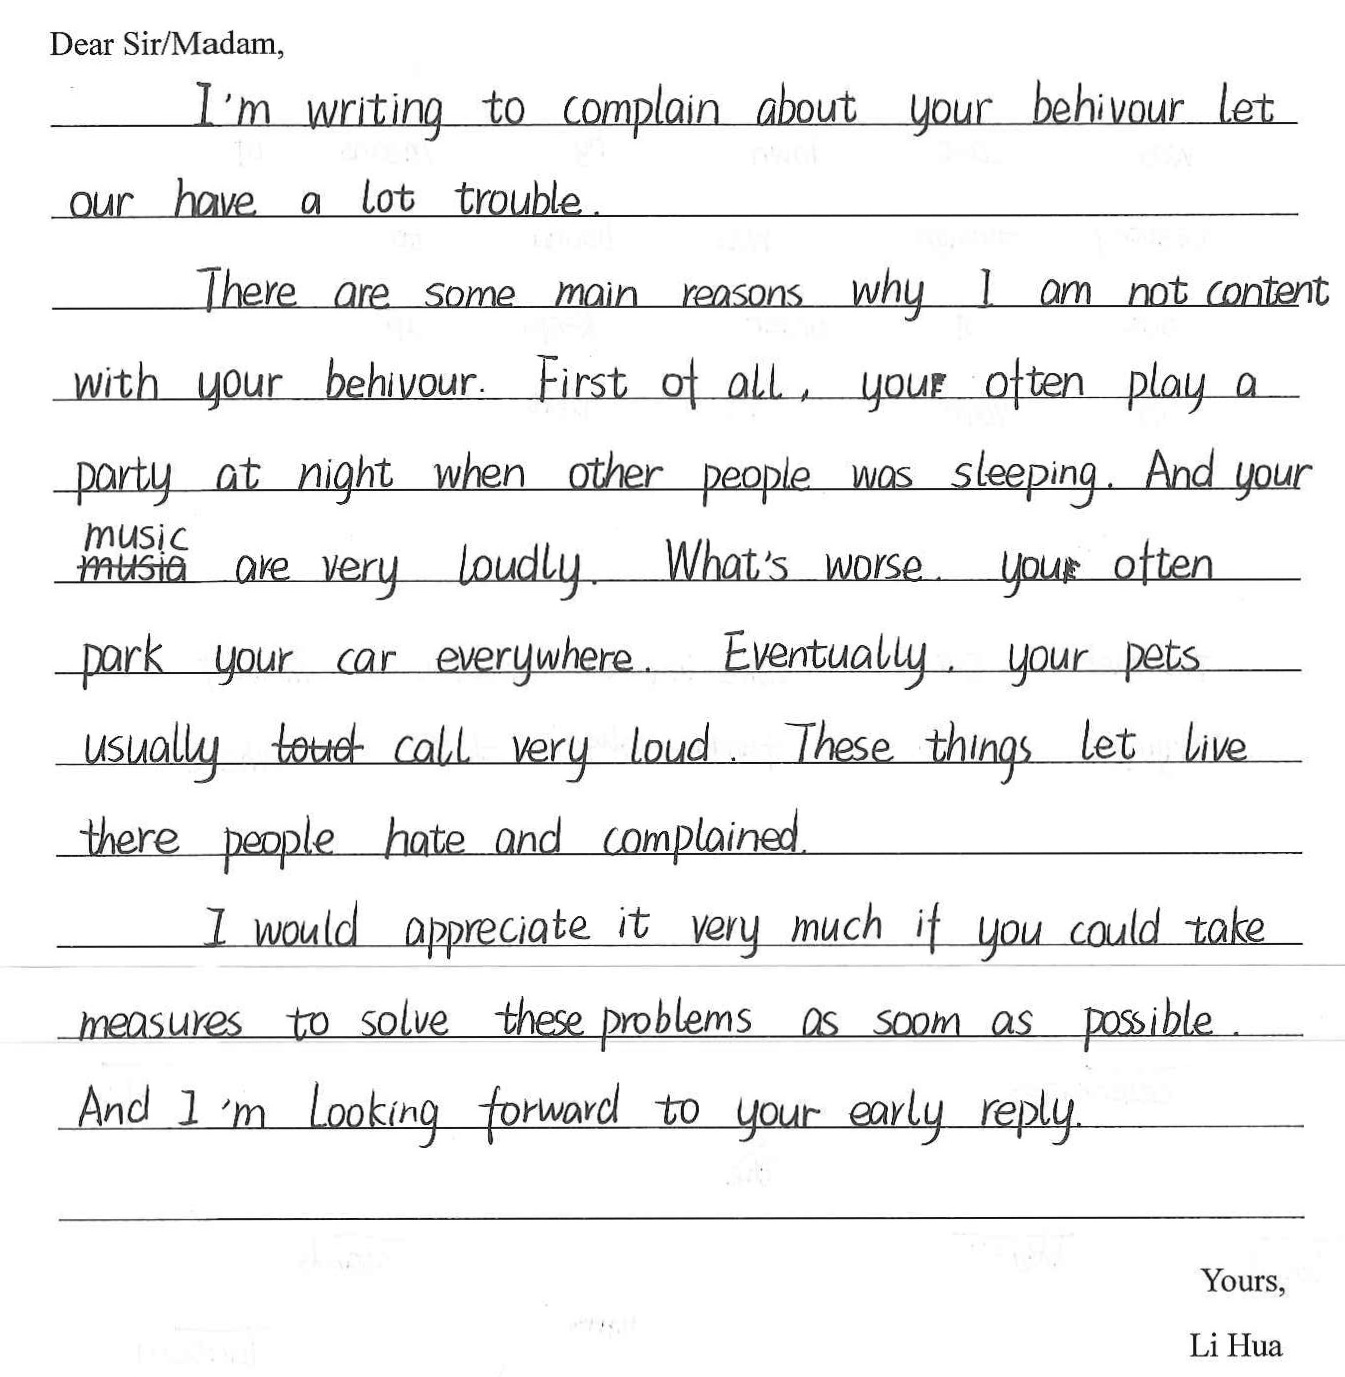 Dear Sir/Madam,
I'm writing to complain about your behivour let
our have a lot trouble.
There are some main reasons why I am not content
with your behivour. First of all, you often play a
party at night when other people was sleeping. And your
music
are very loudly. What's worse. you often
park your car everywhere. Eventually. your pets
usually call very loud. These things let live
there people hate and complained.
I would appreciate it very much if you could take
measures to solve these problems as soom as possible.
And I'm looking forward to your early reply.
Yours,
Li Hua